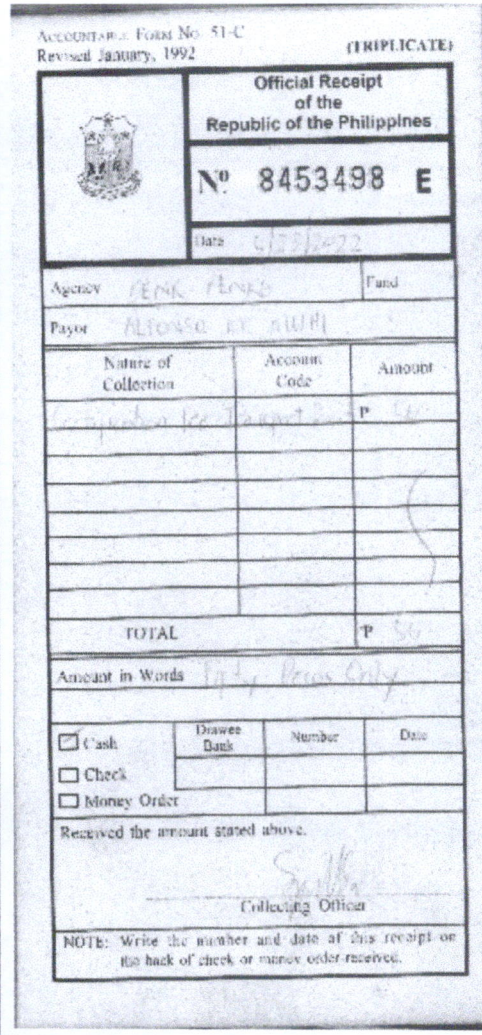 ACCOUNTABLE FORM No. 51-C
Revised January, 1992
(TRIPLICATE)
Official Receipt
of the
Republic of the Philippines
Nº 8453498 E
Date
Agency DENR PENRO
Fund
Payor ALFONSO
Nature of Collection
Account Code
Amount
Fee Transport P 50
TOTAL P 50
Amount in Words Fifty Pesos Only
Cash
Drawee Bank
Number
Date
Check
Money Order
Received the amount stated above.
Collecting Officer
NOTE: Write the number and date of this receipt on
the back of check or money order received.